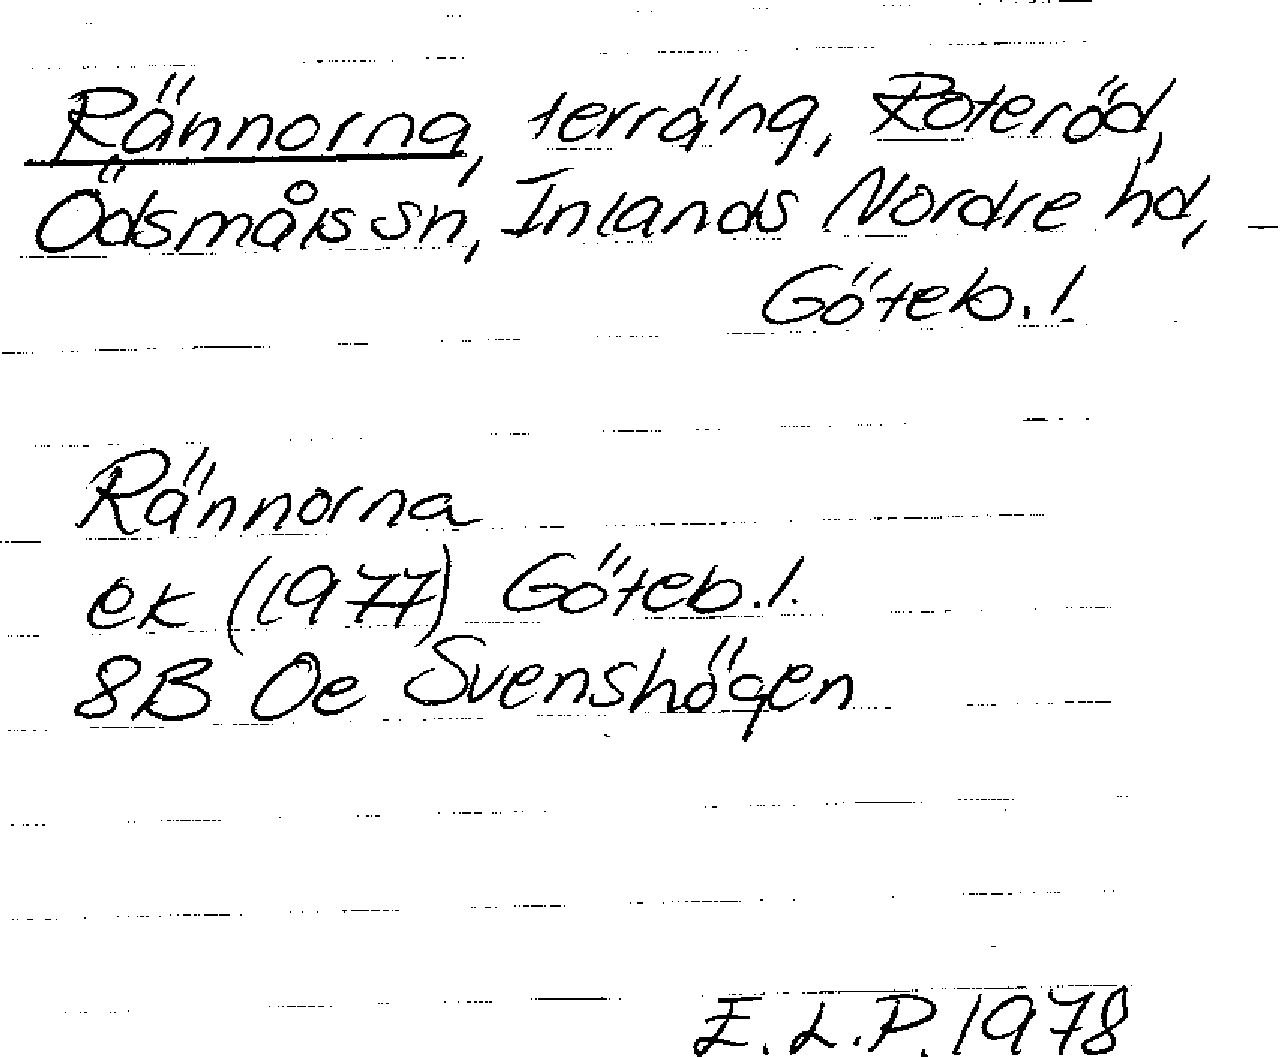 Rännorna, terräng, Roteröd,
Ödsmåls sn, Inlands Nordre hd,
Göteb. l.
Rännorna
ek (1977) Göteb. l.
8B 0e Svenshögen
E. L. P. 1978